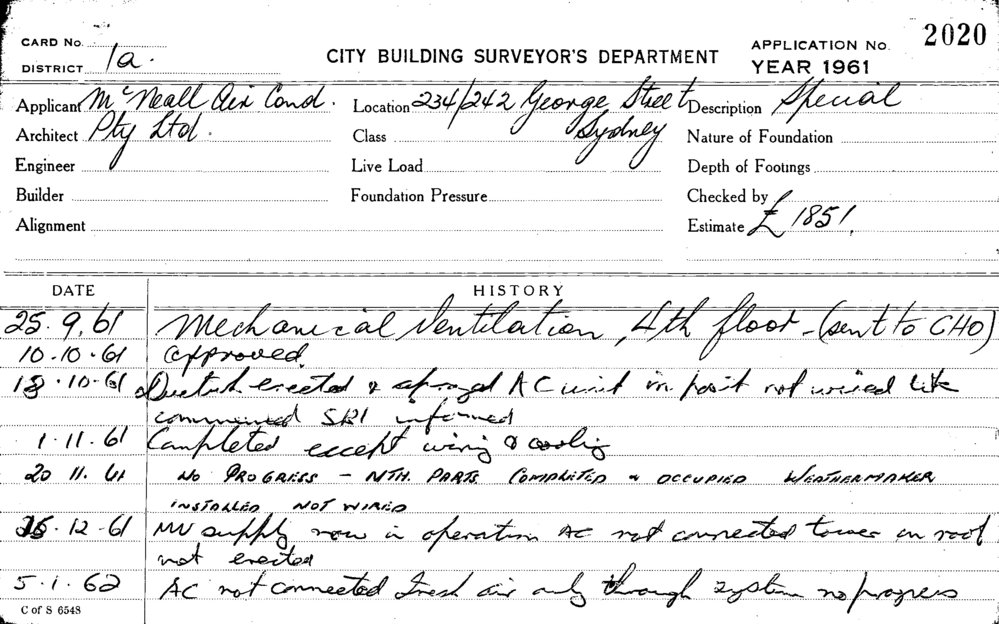 2020
CARD No.
DISTRICT 1a.
CITY BUILDING SURVEYOR'S DEPARTMENT
APPLICATION No.
YEAR 1961
Applicant McNeall Air Cond. Location 234/242 George Street Description Special
Architect Pty Ltd. Class Sydney Nature of Foundation
Engineer Live Load Depth of Footings
Builder Foundation Pressure Checked by
Alignment Estimate £1851.
DATE HISTORY
25.9.61 Mechanical Ventilation, 4th floor - (sent to CHO)
10.10.61 approved
18.10.61 erected & AC unit in posit not wired
informed
1.11.61 Completed except wiring & cooling
20 11. 61 NO PROGRESS - NTH. PARTS COMPLETED & OCCUPIED WEATHERMAKER
INSTALLED NOT WIRED
.12.61 MV supply now in operation AC not connected tower on roof
not erected
5.1.62 AC not connected Fresh air only through system no progress
C of S 6548